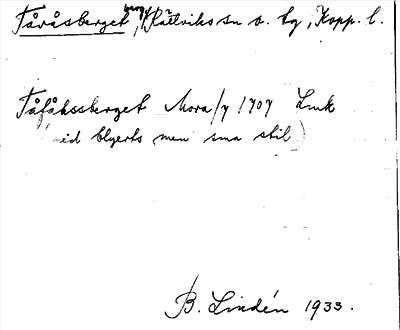 Tåråsberget, berg, i Rättviks sn o. tg, Kopp. l.
Tåfåhssberget Mora/y 1707 Lmk
(med blyerts men sma stil)
B. Lindén 1933.